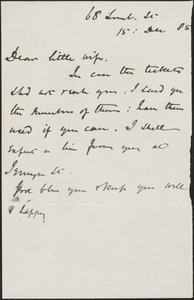 68 Lomb. St
15: Dec 85
Dear little wife,
In case the tickets
shd not reach you, I send you
the numbers of them: have them
used if you can. I shall
expect a line from you at
Jermyn St.
God bless you & keep you well
& happy